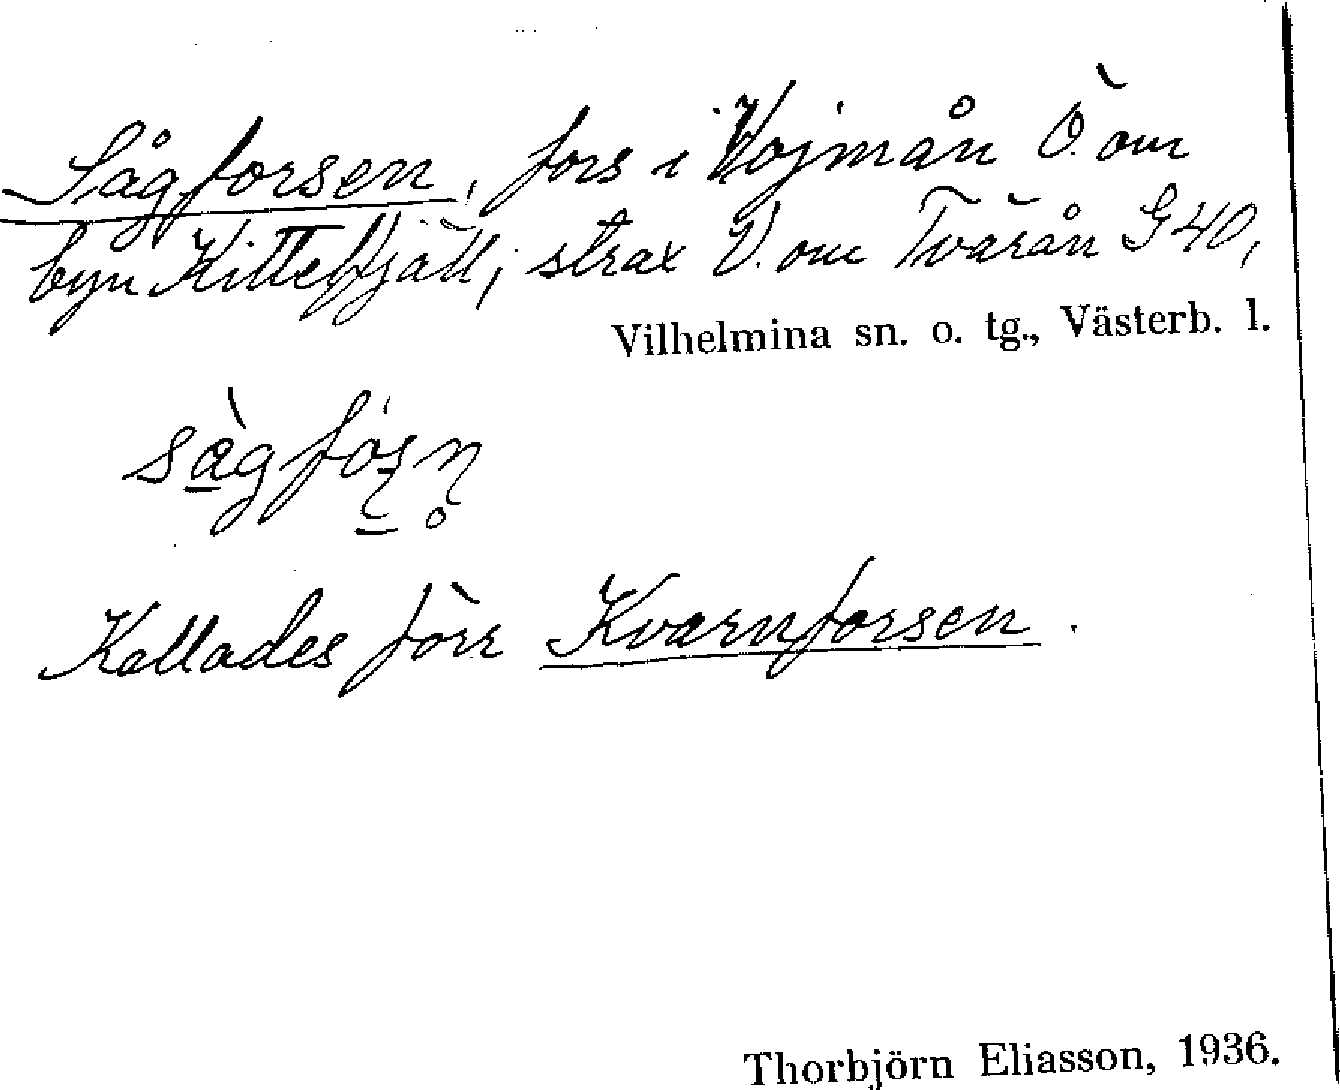 Sågforsen, fors i Vojmån Ö. om
byn Kittelfjäll, strax V. om Tvärån G40,
Vilhelmina sn. o. tg., Västerb. l.
Kallades förr Kvarnforsen.
Thorbjörn Eliasson, 1936.